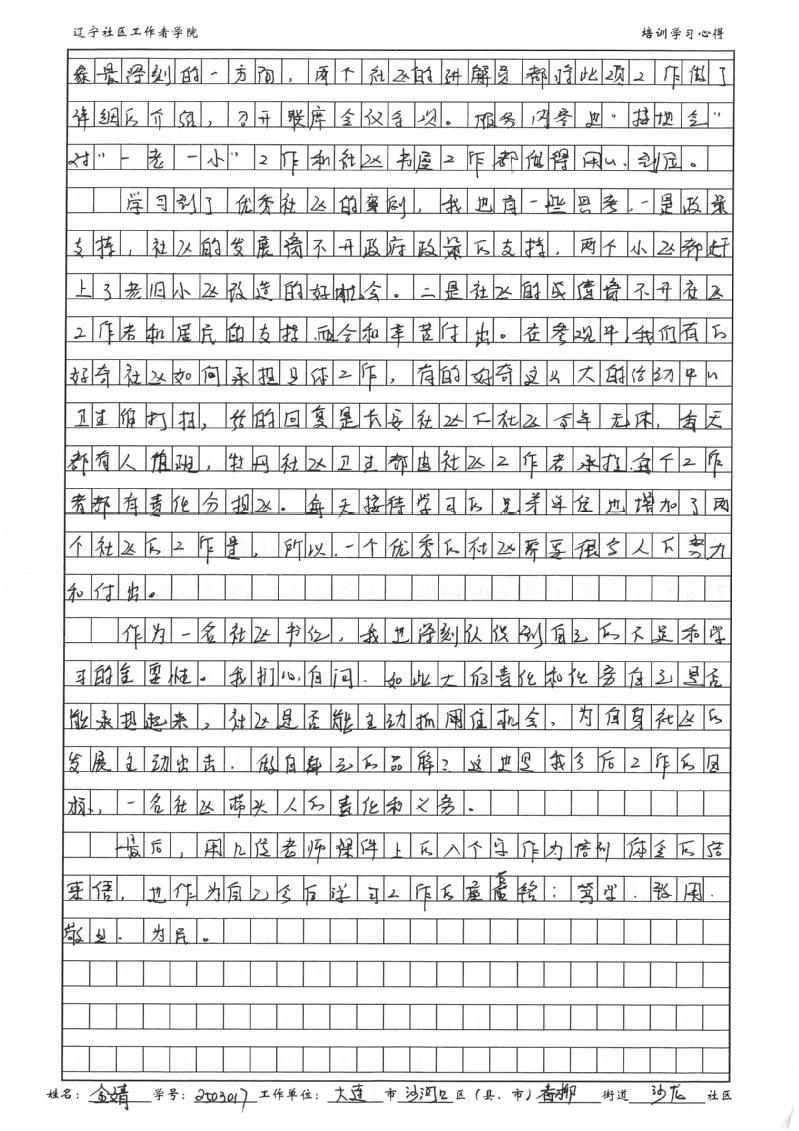 辽宁社区工作者学院 培训学习心得
象最深刻的一方面，两个社区的讲解员都将此项工作做了
详细的介绍，召开联席会议等项。服务内容也"接地气"
对"一老一小"工作和社区书屋工作都做得用心、到位。
学习到了优秀社区的案例，我也有一些思考，一是政策
支持，社区的发展离不开政府政策的支持，两个小区都赶
上了老旧小区改造的好机会。二是社区的成绩离不开社区
工作者和居民的支持、配合和辛苦付出。在参观中，我们有的
好奇社区如何承担具体工作，有的好奇这么大的活动中心
卫生谁打扫，给的回复是长安社区人社区全年无休，每天
都有人值班，牡丹社区卫生都由社区工作者承担，每个工作
者都有责任分担区。每天接待学习的兄弟单位也增加了两
个社区的工作量，所以，一个优秀的社区需要很多人的努力
和付出。
作为一名社区书记，我也深刻认识到自己的不足和学
习的重要性。我扪心自问，如此大的责任和任务自己是否
能承担起来，社区是否能主动抓用住机会，为自身社区的
发展主动出击，做自己的品牌？这也是我今后工作的目
标，一名社区带头人的责任和义务。
最后，用几位老师课件上的八个字作为培训体会的结
束语，也作为自己今后学习工作的座右铭：笃学、致用、
敬业、为民。
姓名：金婧 学号：2503017 工作单位：大连 市 沙河口 区（县、市）春柳 街道 沙龙 社区